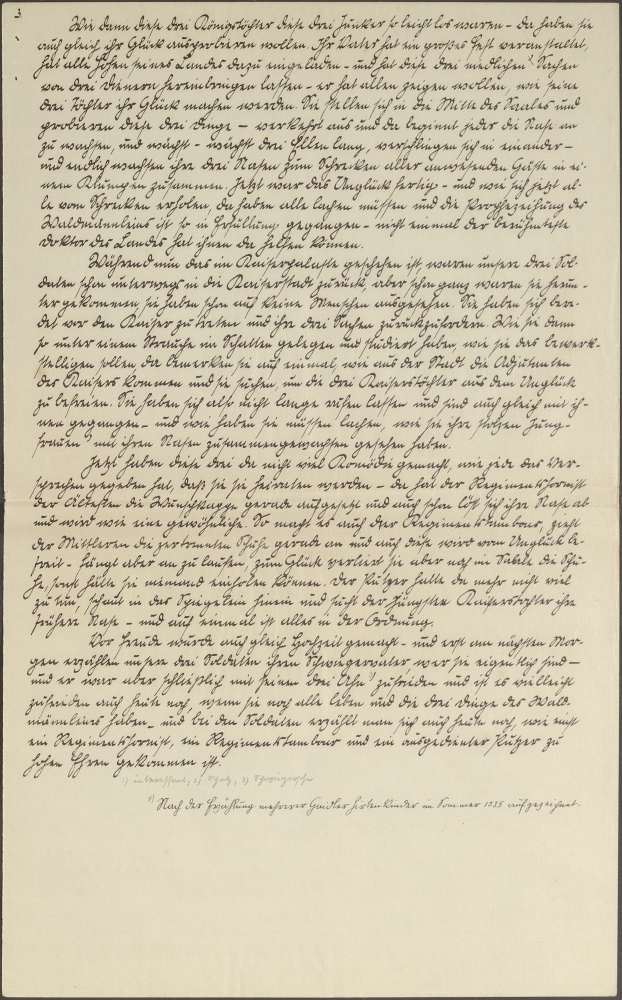 3
Wie dann diese drei Königstöchter diese drei Junker so leicht los waren – da haben sie
auch gleich ihr Glück ausprobieren wollen. Ihr Vater hat ein großes Fest veranstaltet,
hat alle Hohen seines Landes dazu eingeladen – und hat diese drei niedlichen Sachen
von drei Dienern hereinbringen lassen – er hat allen zeigen wollen, wie seine
drei Töchter ihr Glück machen werden. Sie stellen sich in die Mitte des Saales und
probieren diese drei Dinge – verkehrt aus und da beginnt jeder die Nase an
zu wachsen, und wächst – wächst drei Ellen lang, verschlingen sich in einander –
und endlich wachsen ihre drei Nasen zum Schrecken aller anwesenden Gäste in ei-
nem Klumpen zusammen. Jetzt war das Unglück fertig – und wie sich jetzt al-
le vom Schrecken erholen, da haben alle lachen müssen und die Prophezeihung des
Waldmännleins ist so in Erfüllung gegangen – nicht einmal der berühmteste
Doktor des Landes hat ihnen da helfen können.
Während nun das im Kaiserpalaste geschehen ist, waren unsere drei Sol-
daten schon unterwegs in die Kaiserstadt zurück, aber schon ganz waren sie herun-
ter gekommen, sie haben schon auf keine Menschen ausgesehen. Sie haben sich bere-
det vor den Kaiser zu treten und ihre drei Sachen zurückzufordern. Wie sie dann
so unter einem Strauche im Schatten gelegen und studiert haben, wie sie das bewerk-
stelligen sollen, da bemerken sie auf einmal, wie aus der Stadt die Adjutanten
des Kaisers kommen und sie suchen, um die drei Kaiserstöchter aus dem Unglück
zu befreien. Sie haben sich also nicht lange rufen lassen und sind auch gleich mit ih-
nen gegangen – und wie haben sie müssen lachen, wie sie ihre stolzen Jung-
frauen mit ihren Nasen zusammengewachsen gesehen haben.
Jetzt haben diese drei da nicht viel Komödie gemacht, wie jede das Ver-
sprechen gegeben hat, daß sie sie heiraten werden – da hat der Regimentshornist
der Ältesten die Wunschkappe gerade aufgesetzt und auch schon löst sich ihre Nase ab
und wird wie eine gewöhnliche. So macht es auch der Regimentstambour, zieht
der Mittleren die zertrennten Schuhe gerade an und auch diese wird vom Unglück be-
freit – hängt aber an zu laufen, zum Glück verliert sie aber noch im Saale die Schu-
he, sonst hätte sie niemand einholen können. Der Putzer hatte da mehr nicht viel
zu tun, schaut in das Spiegelein hinein und sucht der Jüngsten Kaiserstochter ihre
frühere Nase – und auf einmal ist alles in der Ordnung.
Vor Freude wurde auch gleich Hochzeit gemacht – und erst am nächsten Mor-
gen erzählen unsere drei Soldaten ihrem Schwiegervater wer sie eigentlich sind –
und er war aber schließlich mit seinen drei zufrieden und ist es vielleicht
zufrieden auch heute noch, wenn sie noch alle leben und die drei Dinge des Wald-
männleins haben – und bei den Soldaten erzählt man sich auch heute noch, wie einst
ein Regimentshornist, ein Regimentstambour und ein ausgedienter Putzer zu
hohen Ehren gekommen ist.
Nach der Erzählung mehrerer Hirtenkinder im Sommer 1935 aufgezeichnet.